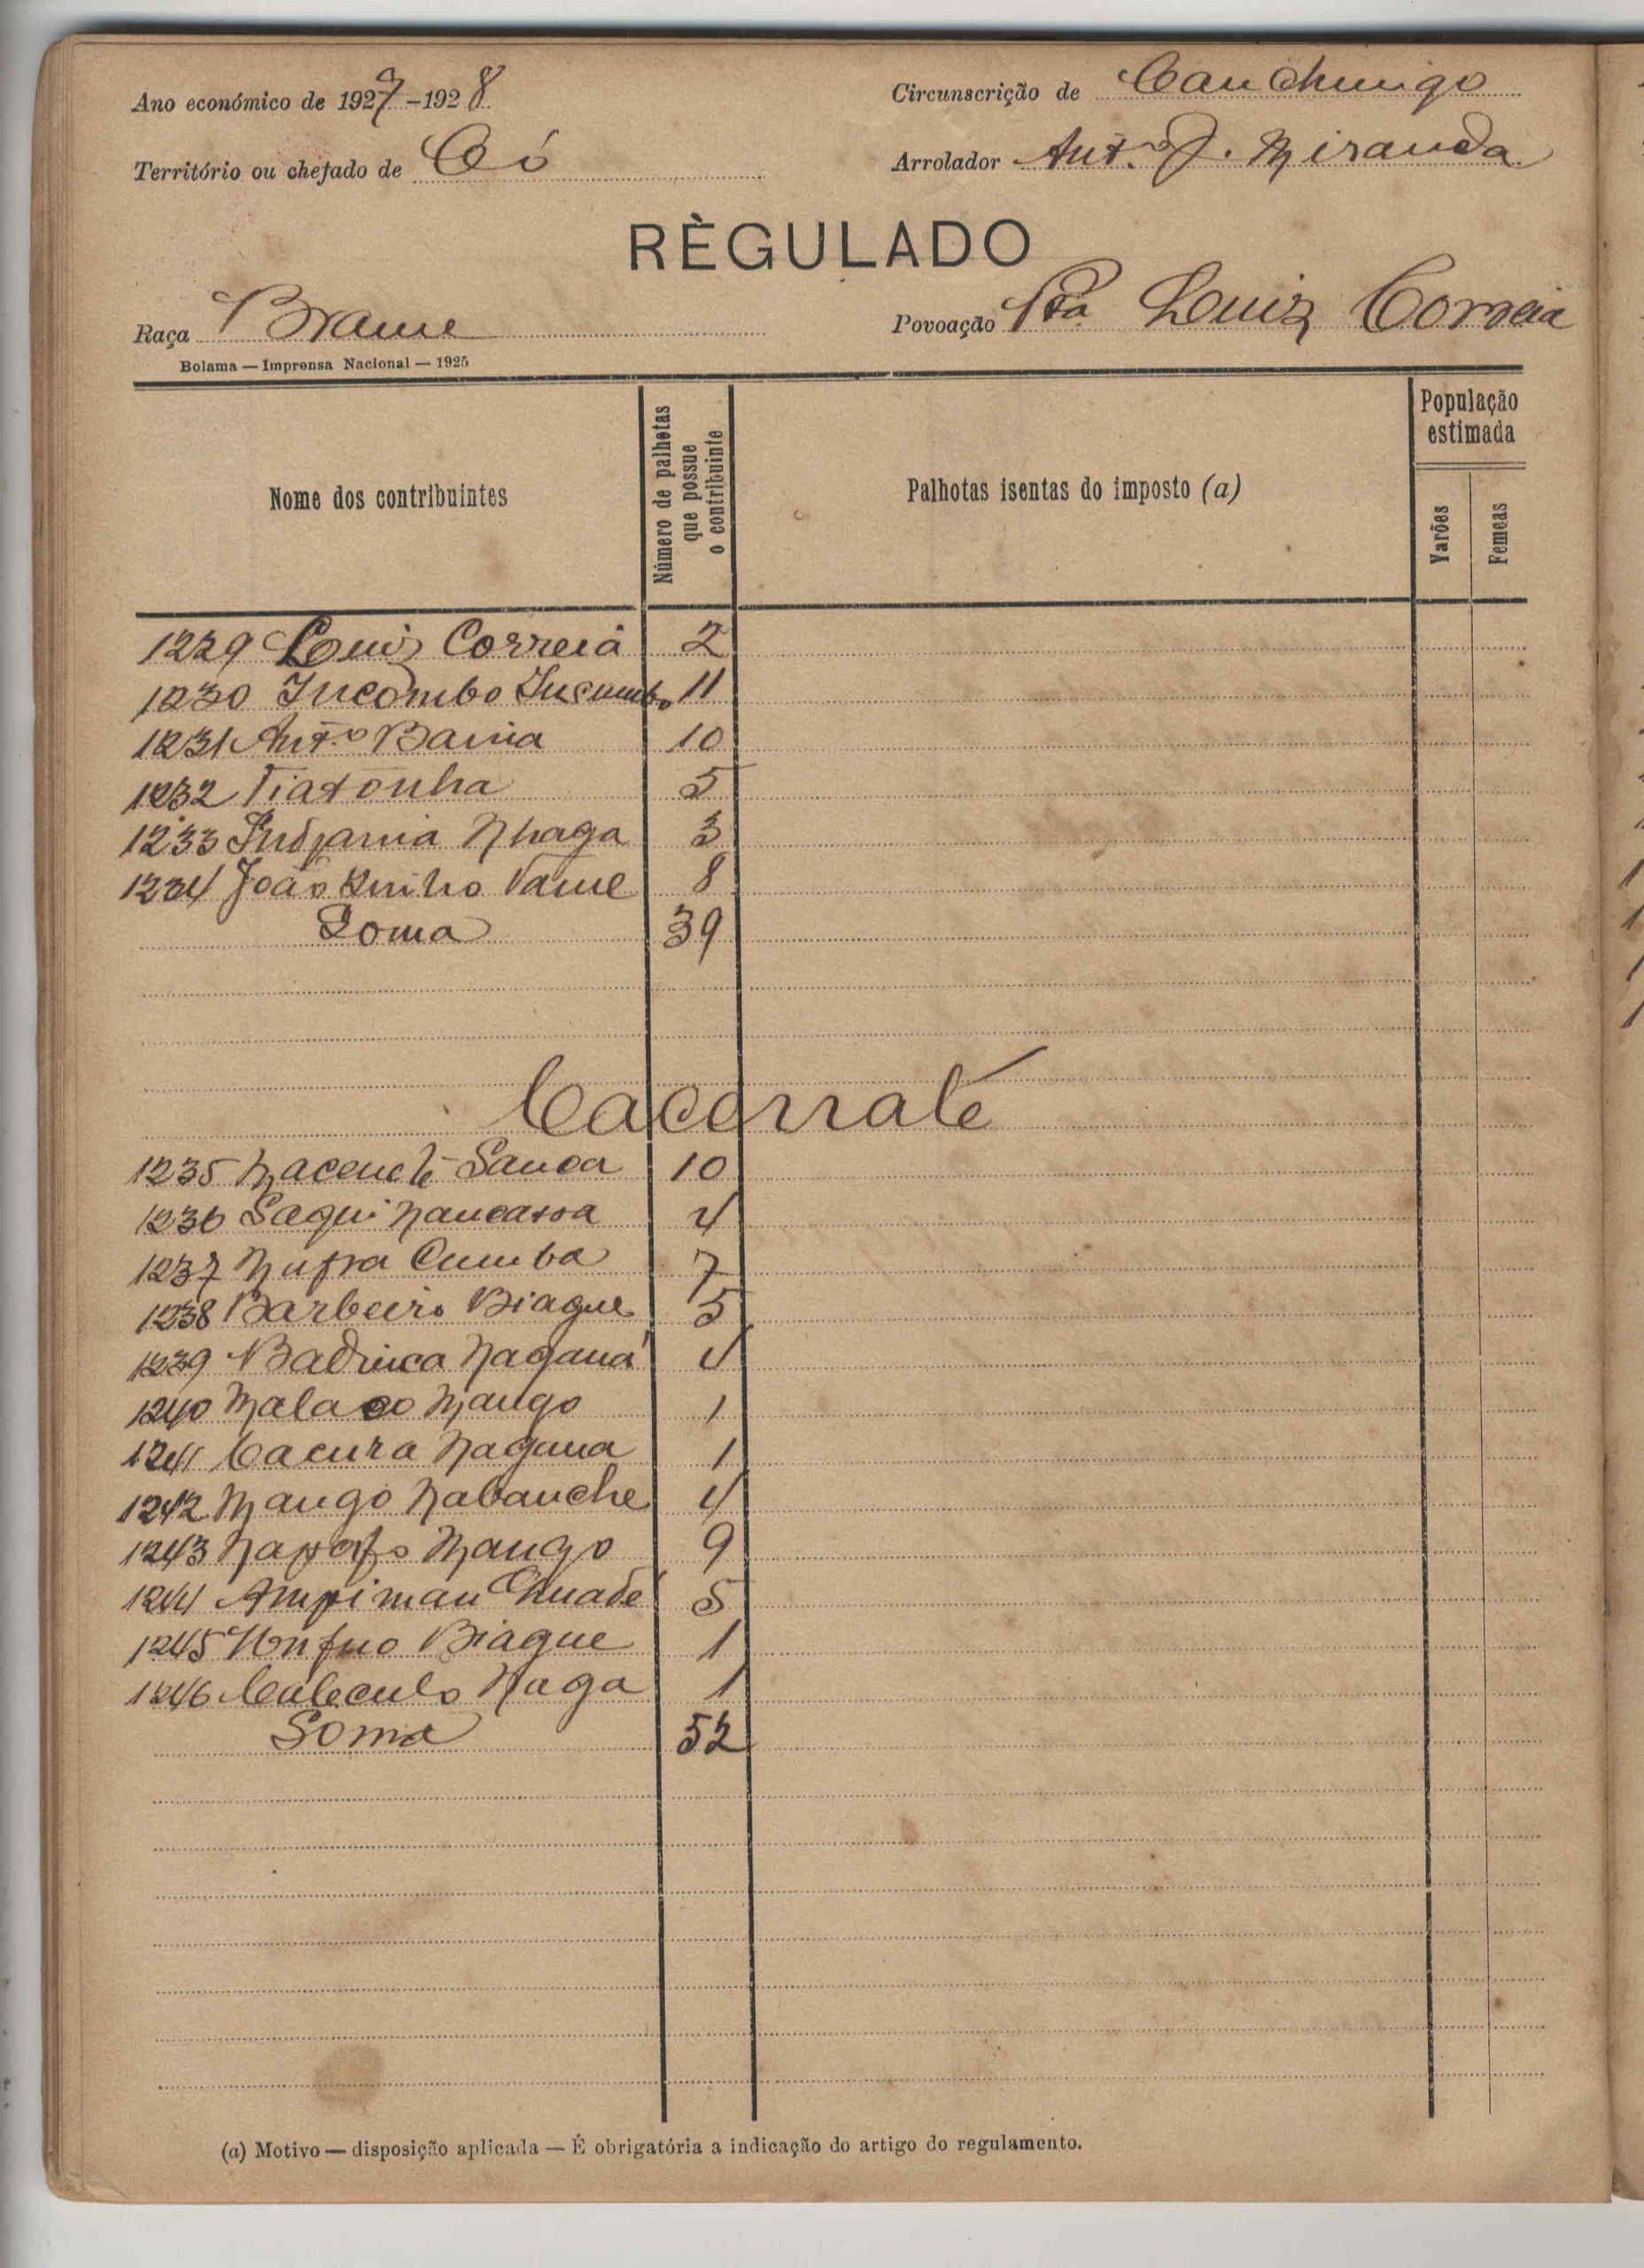 Ano económico de 1927-1928
Circunscrição de Canchungo
Território ou chefado de Có
Arrolador Antº J. Miranda
RÈGULADO
Raça Brame
Povoação Pta Luiz Correia
Bolama — Imprensa Nacional — 1925
Nome dos contribuintes
Número de palhotas que possue o contribuinte
Palhotas isentas do imposto (a)
População estimada
Varões
Femeas
1229 Luiz Correia 2
1230 Incombo 11
1231 Antº Baina 10
1232 Tiatonha 5
1233 Nhaga 3
1234 João Vame 8
Soma 39
Cacorraté
1235 Sanca 10
1236 Saqui Nancassa 4
1237 Nufra Cumba 7
1238 Barbeiro Biague 5
1239 Badinca Naganá 4
1240 Mala Mango 1
1241 Cacura Nagana 1
1242 Mango Nabanche 4
1243 Mango 9
1244 Ampiman 5
1245 Biague 1
1246 Naga 1
Soma 52
(a) Motivo — disposição aplicada — É obrigatória a indicação do artigo do regulamento.